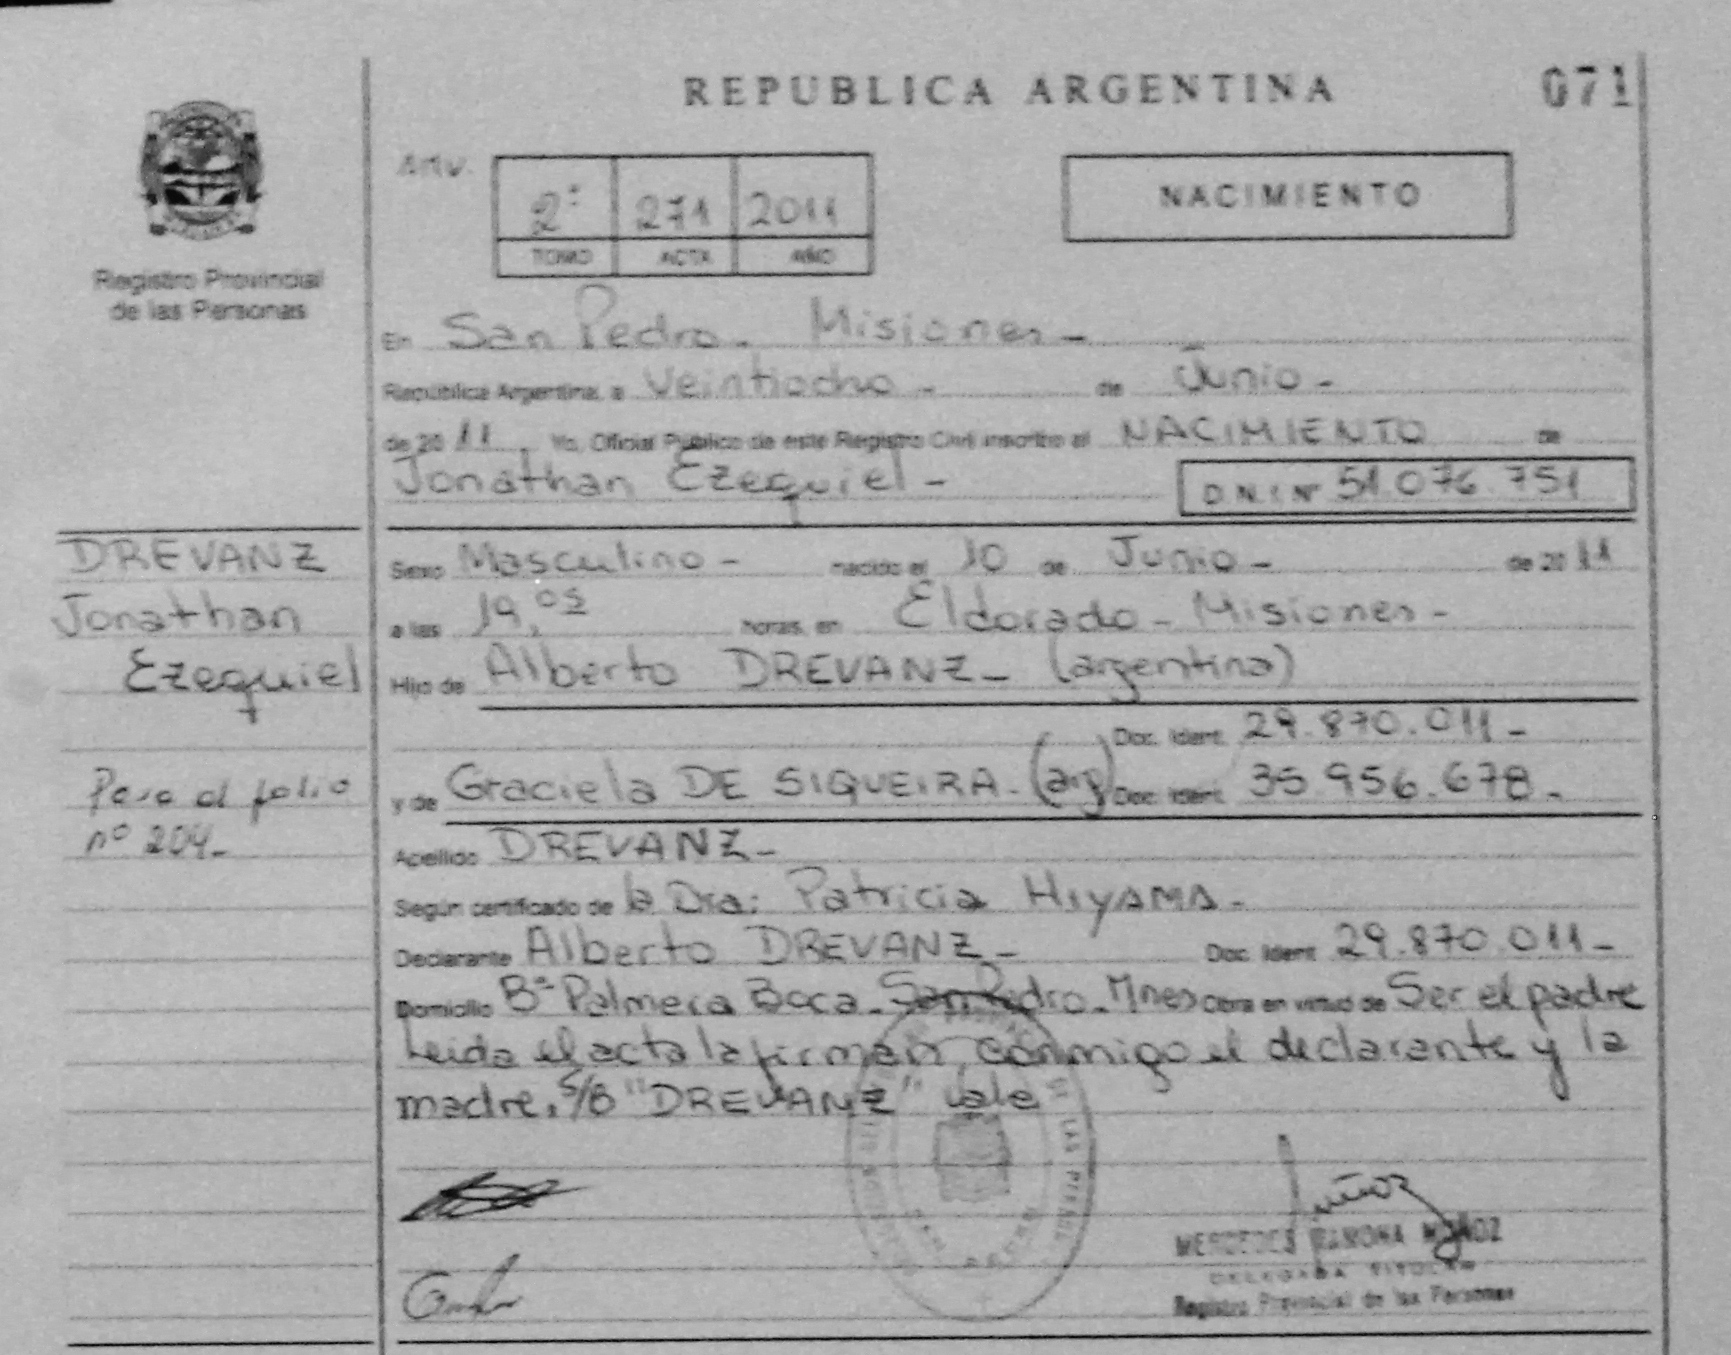 REPUBLICA ARGENTINA
071
Registro Provincial
de las Personas
2º 271 2011
TOMO ACTA AÑO
NACIMIENTO
En San Pedro - Misiones -
República Argentina, a Veintiocho - de Junio -
de 2011, Yo, Oficial Público de este Registro Civil inscribo el NACIMIENTO de
Jonathan Ezequiel -
D.N.I. Nº 51.076.751
DREVANZ
Jonathan
Ezequiel
Paso al folio
nº 204-
Sexo Masculino - nacido el 10 de Junio - de 2011
a las 19,05 horas, en Eldorado - Misiones -
Hijo de Alberto DREVANZ - (argentino)
Doc. Ident. 29.870.011 -
y de Graciela DE SIQUEIRA - (arg) Doc. Ident. 35.956.678 -
Apellido DREVANZ -
Según certificado de la Dra: Patricia HIYAMA -
Declarante Alberto DREVANZ - Doc. Ident. 29.870.011 -
Domicilio Bº Palmera Boca - San Pedro - Mnes Obra en virtud de Ser el padre
Leida el acta la firman conmigo el declarante y la
madre. S/B "DREVANZ" vale
MERCEDES RAMONA MUÑOZ
DELEGADA TITULAR
Registro Provincial de las Personas